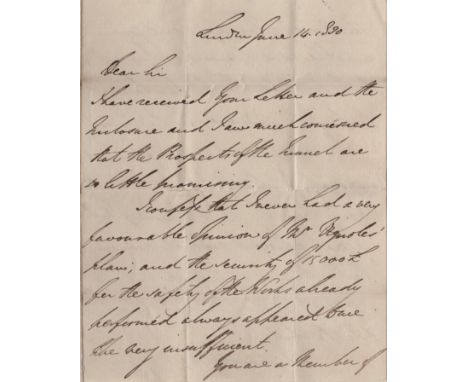 London June 14. 1830
Dear Sir
I have received Your Letter and the
Inclosure and I am much concerned
that the Prospects of the Tunnel are
so little promising.
I confess that I never had a very
favourable opinion of Mr Vignoles'
plan; and the security of 15000£
for the safety of the Works already
performed always appeared to me
the very insufficient.
You are a Member of